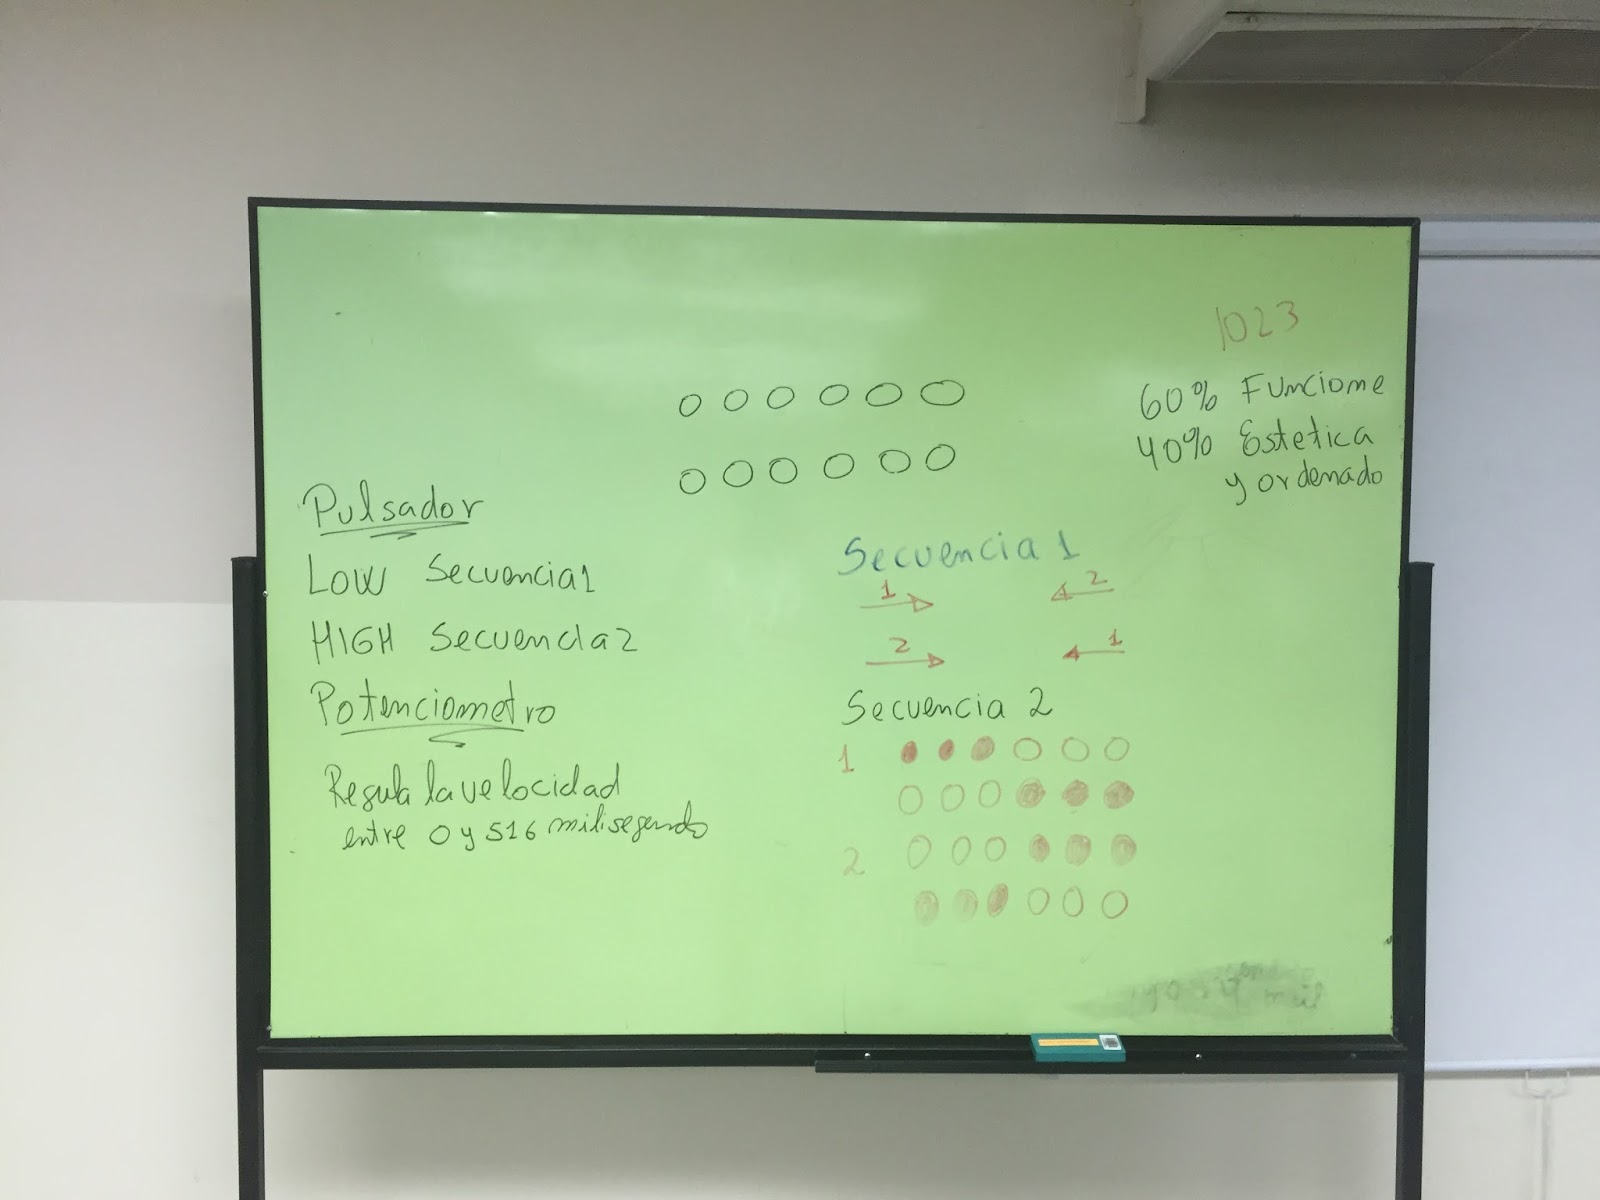 1023
60% Funcione
40% Estetica
y ordenado
Pulsador
LOW Secuencia1
HIGH Secuencia2
Potenciometro
Regula la velocidad
entre 0 y 516 milisegundo
Secuencia 1
1 2
2 1
Secuencia 2
1
2